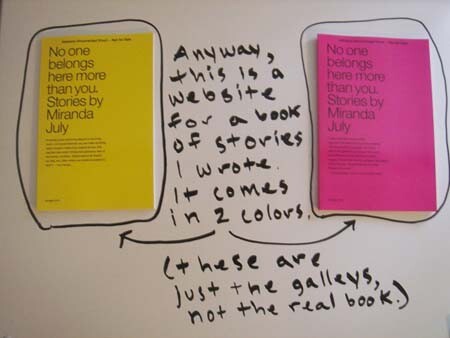 No one
belongs
here more
than you.
Stories by
Miranda
July
Anyway,
this is a
website
for a book
of stories
I wrote.
It comes
in 2 colors.
No one
belongs
here more
than you.
Stories by
Miranda
July
(these are
just the galleys,
not the real book.)